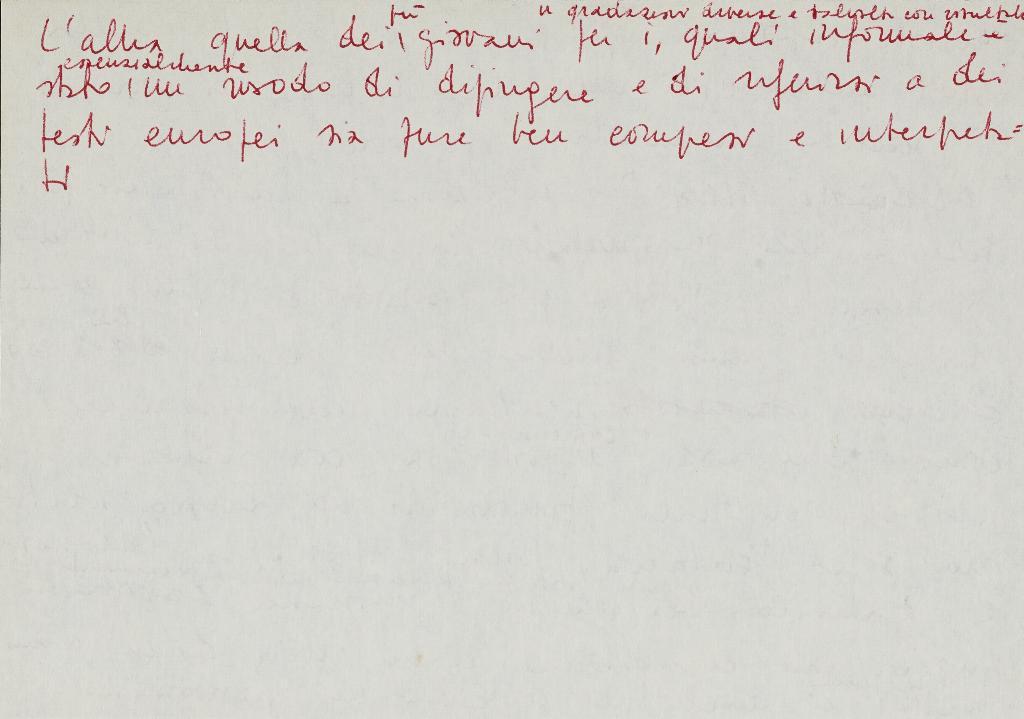 più in gradazioni diverse e talvolta con risultati
L'altra, quella dei giovani per i quali informale è
essenzialmente
stato un modo di dipingere e di riferirsi a dei
testi europei sia pure ben compresi e interpreta=
ti